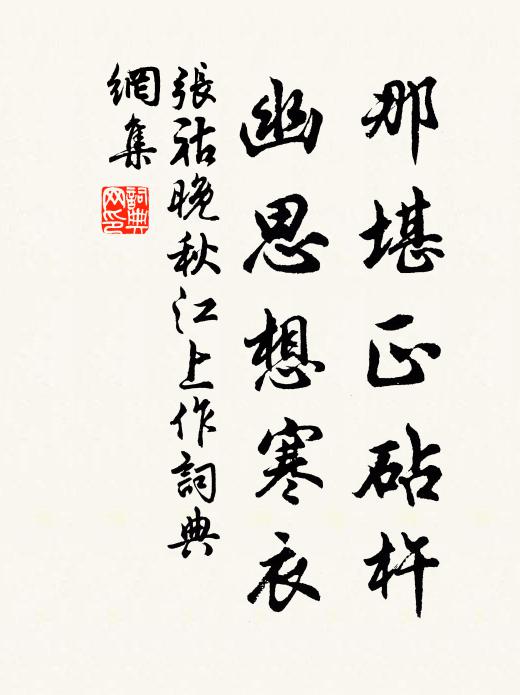 那堪正砧杵
幽思想寒衣
張祜晚秋江上作詞典
網集
詞典網印